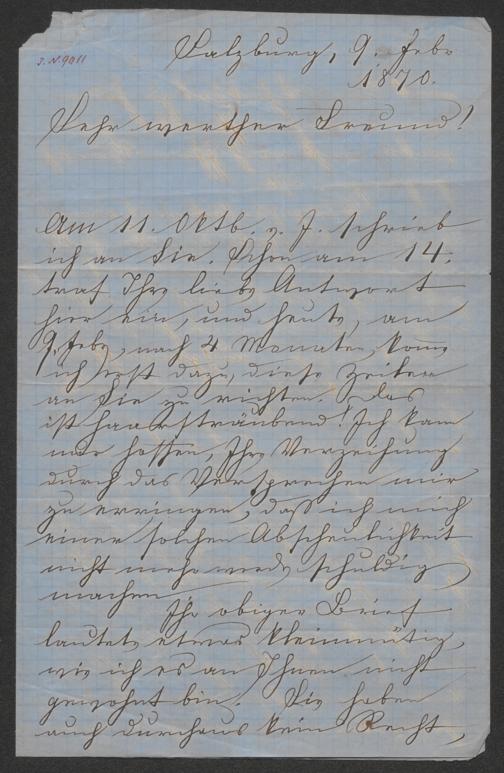 J.N.9011
Salzburg, 9. Febr
1870.
Sehr werther Freund!
Am 11. Oktb. v. J. schrieb
ich an Sie. Schon am 14.
traf Ihre liebe Antwort
hier ein, und heute, am
9. Febr, nach 4 Monaten, komme
ich erst dazu, diese Zeilen
an Sie zu richten. Das
ist haarsträubend! Ich kann
nur hoffen, Ihre Verzeihung
durch das Versprechen mir
zu erringen, daß ich mich
einer solchen Abscheulichkeit
nicht mehr werde schuldig
machen
Ihr obiger Brief
lautete etwas kleinmütig,
wie ich es an Ihnen nicht
gewohnt bin. Sie haben
auch durchaus kein Recht,